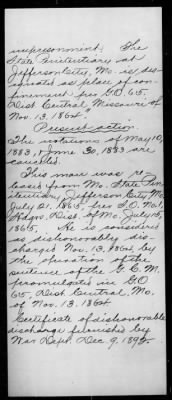 imprisonment. The
State Penitentiary at
Jefferson City, Mo. is des-
ignated as place of con-
finement per G.O. 65.
Dist. Central Missouri of
Nov. 13. 1864.
Present action.
The notations of May 10,
1883, & June 30, 1883 are
canceled.
This man was re-
leased from Mo. State Pen-
itentiary, Jefferson City, Mo.
July 21, 1865, per S.O. 201,
Hdqrs. Dist. of Mo. July 15,
1865. He is considered
as dishonorably dis-
charged Nov. 13, 1864, by
the operation of the
sentence of the G.C.M.
promulgated in G.O.
65, Dist. Central, Mo.
of Nov. 13. 1864
Certificate of dishonorable
discharge furnished by
War Dept. Dec. 9, 1895.